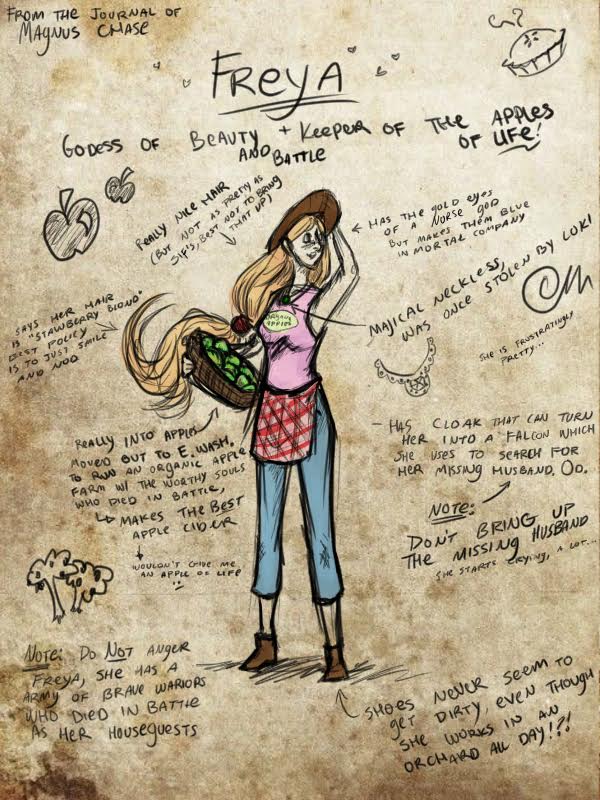 FROM THE JOURNAL OF
MAGNUS CHASE
FREYA
GODESS OF BEAUTY + KEEPER OF THE APPLES
AND BATTLE
OF LIFE!
REALLY NICE HAIR
(BUT NOT AS PRETTY AS
SIF'S, BEST NOT TO BRING
THAT UP)
HAS THE GOLD EYES
OF A NORSE GOD
BUT MAKES THEM BLUE
IN MORTAL COMPANY
MAJICAL NECKLESS,
WAS ONCE STOLEN BY LOKI
SAYS HER HAIR
IS "STAWBERRY BLOND"
BEST POLICY
IS TO JUST SMILE
AND NOD
ORGANIC
APPLES
SHE IS FRUSTRATINGLY
PRETTY...
REALLY INTO APPLES
MOVED OUT TO E. WASH.
TO RUN AN ORGANIC APPLE
FARM W/ THE WORTHY SOULS
WHO DIED IN BATTLE,
MAKES THE BEST
APPLE CIDER
WOULDN'T GIVE ME
AN APPLE OF LIFE
- HAS CLOAK THAT CAN TURN
HER INTO A FALCON WHICH
SHE USES TO SEARCH FOR
HER MISSING HUSBAND, OD.
NOTE:
DON'T BRING UP
THE MISSING HUSBAND
SHE STARTS CRYING, A LOT...
NOTE: DO NOT ANGER
FREYA, SHE HAS A
ARMY OF BRAVE WARIORS
WHO DIED IN BATTLE
AS HER HOUSEGUESTS
SHOES NEVER SEEM TO
GET DIRTY, EVEN THOUGH
SHE WORKS IN AN
ORCHARD ALL DAY!?!